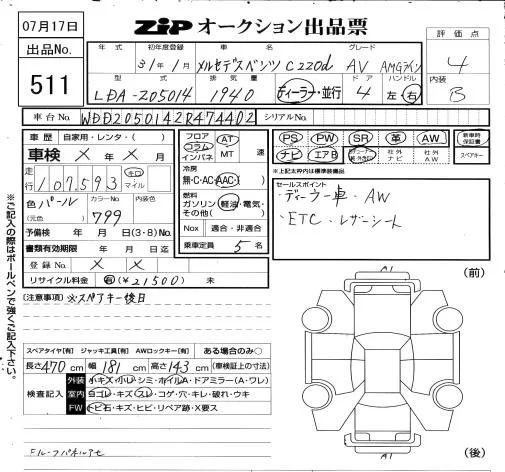 07月17日
ZIP オークション出品票
出品No.
511
評価点
4
内装
B
年式 初年度登録 車名 グレード
31年1月 メルセデスベンツ C220d AV AMGライン
型式 排気量 ドア ハンドル
LDA-205014 1940 ディーラー・並行 4 左・右
車台No. WDD2050142R474402 シリアルNo.
車歴 自家用・レンタ・( )
車検 × 年 × 月
走行 107,593 キロ マイル
色 パール カラーNo. 799 内装色
(元色)
予備検 年 月 日(3・8)No.
書類有効期限 年 月 日迄
登録No. × ×
リサイクル料金 有(¥21500) 未
フロア コラム インパネ AT MT 速
冷房 無・C・AC・AAC・( )
燃料 ガソリン・軽油・電気・その他( )
Nox 適合・非適合
乗車定員 5 名
PS PW SR 革 AW 新車時保証書
ナビ エアB 社外ナビ 社外AW スペアキー
*上記太枠内は標準装備品
セールスポイント
・ディーラー車・AW
・ETC・レザーシート
(注意事項) ※スペアキー後日
スペアタイヤ[有] ジャッキ工具[有] AWロックキー[有] ある場合のみ○
長さ 470 cm 幅 181 cm 高さ 143 cm (車検証上の寸法)
検査記入
外装 小キズ・小レ・シミ・ホイルA・ドアミラー(A・ワレ)
室内 ヨゴレ・キズ・スレ・コゲ・穴・キレ・破れ・ウキ
FW トビ石・キズ・ヒビ・リペア跡・X要ス
(前)
A1
A1
(後)
※ご記入の際はボールペンで強くご記入下さい。